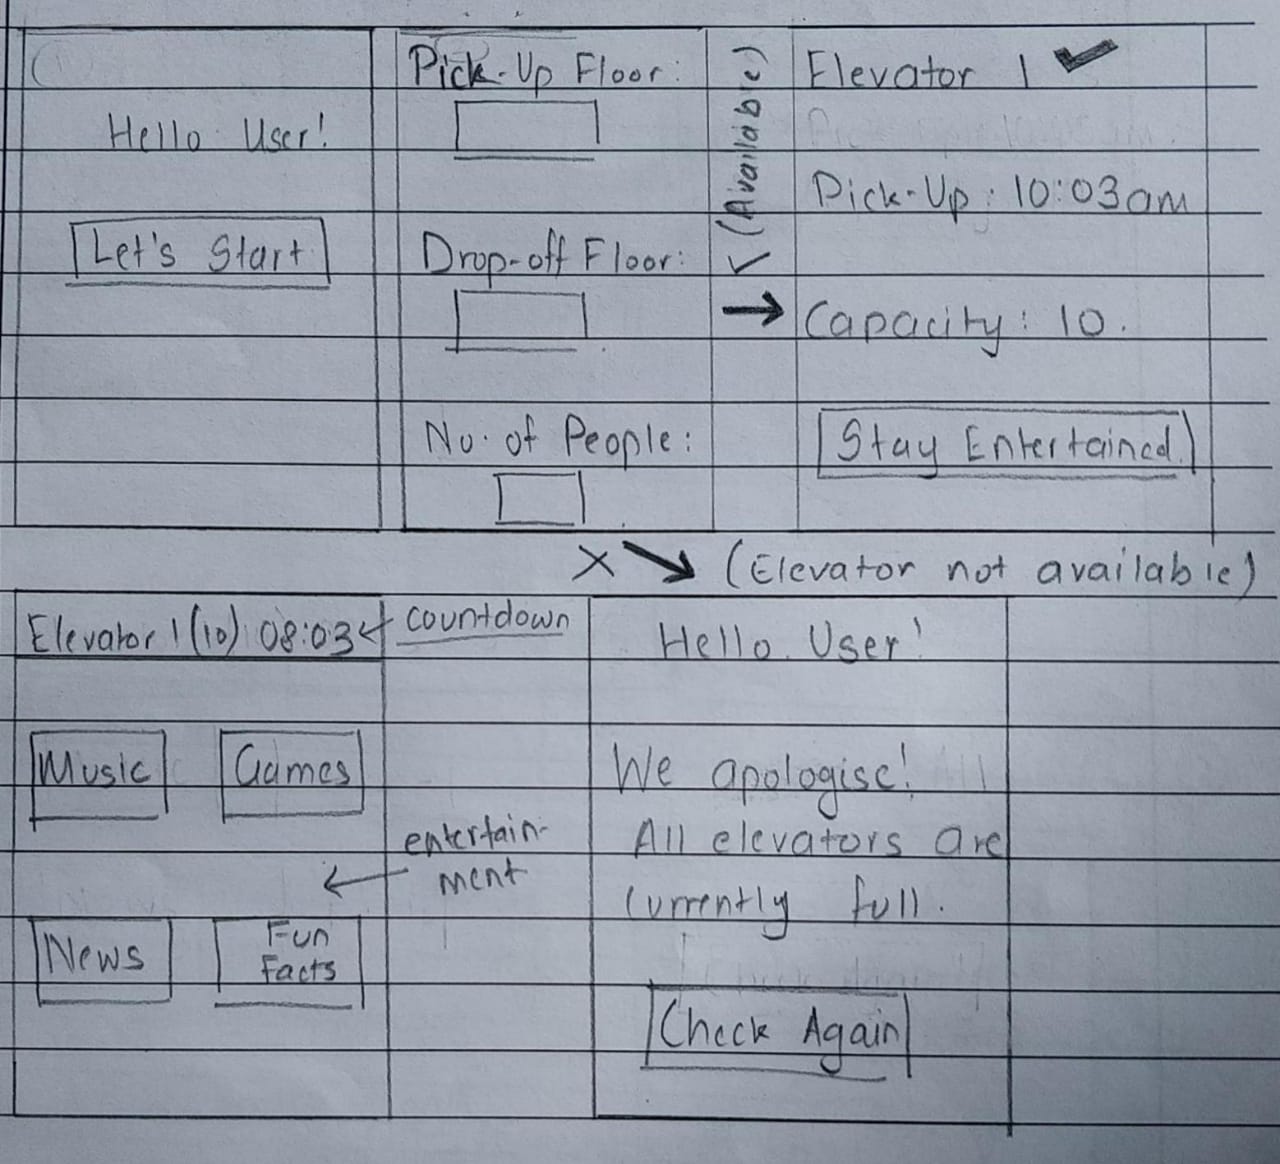 Hello User!
Let's Start
Pick-Up Floor:
Drop-off Floor:
No. of People:
✓ (Available)
→
Elevator 1 ✔
Pick-Up: 10:03am
Capacity: 10.
Stay Entertained
X ↘ (Elevator not available)
Elevator 1 (10) 08:03 ← countdown
Music
Games
entertain-
ment
←
News
Fun
Facts
Hello User!
We apologise!
All elevators are
currently full.
Check Again